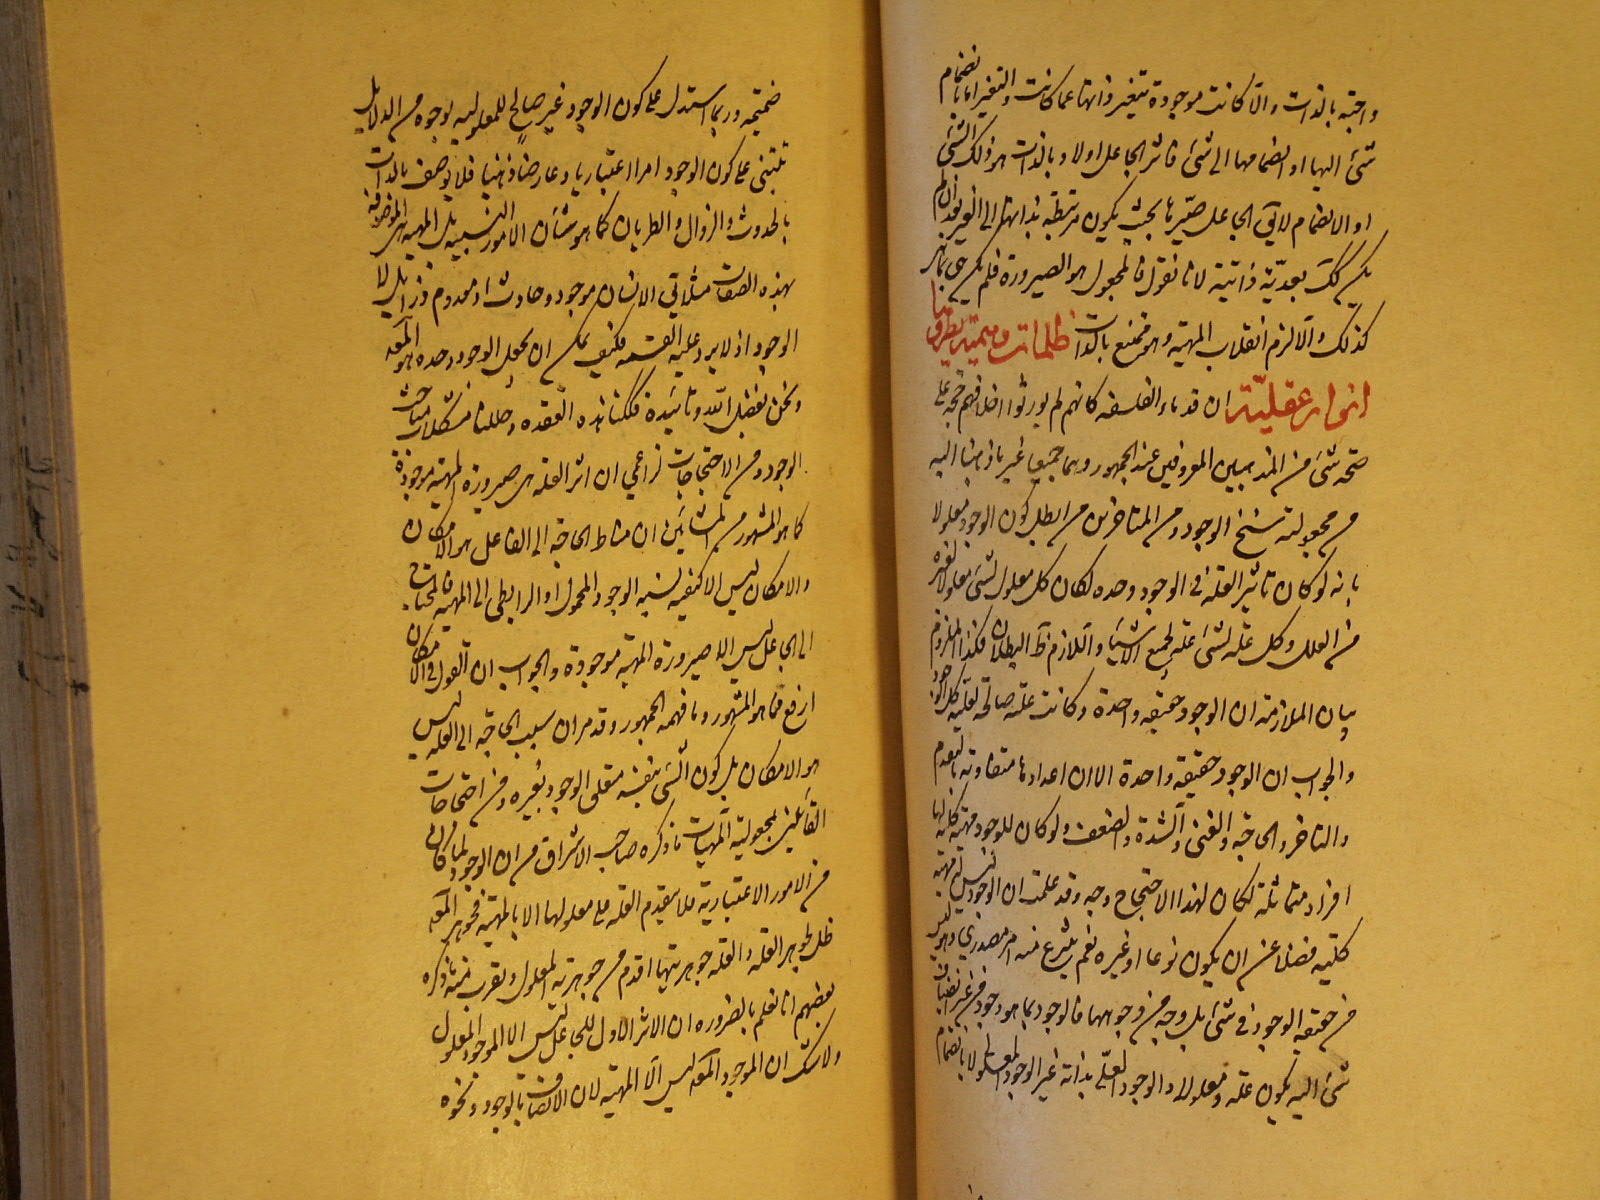 واجبة بالذات والا كانت موجودة بتغير ذاتها عما كانت والتغير اما بانضمام
شئ اليها او انضمامها الى شئ فاثر الجاعل اولا وبالذات هو ذلك الشئ
او الانضمام لا يقال الجاعل صيرها بحيث يكون مرتبطة بذاتها الى الغير بعد ان لم
يكن كك بعدية ذاتية لانا نقول فالمجعول هو الصيرورة فلم يكن هي بما هي
كذلك والا لزم انقلاب المهية وهو ممتنع بالذات ظلمات وهمية يطردها
انوار عقلية ان قدماء الفلسفة كانهم لم يورثوا اخلافهم حجة على
صحة شئ من المذهبين المعروفين عند الجمهور وهما جميعا غير ما ذهبنا اليه
من مجعولية سنخ الوجود ومن المتاخرين من ابطل كون الوجود معلولا
بانه لو كان تاثير العلة في الوجود وحده لكان كل معلول لشئ معلولا لغيره
من العلل وكل علة لشئ علة لجميع الاشياء واللازم ظ البطلان فكذا الملزوم
بيان الملازمة ان الوجود حقيقة واحدة وكانت علة صالحة لعلية كل الوجود
والجواب ان الوجود حقيقة واحدة الا ان اعدادها متفاوتة بالتقدم
والتاخر والحاجة والغنى والشدة والضعف ولو كان للوجود مهية كلية لها
افراد متماثلة لكان لهذا الاحتجاج وجه وقد علمت ان الوجود ليس له مهية
كلية فضلا عن ان يكون نوعا او غيره نعم ينتزع منه امر مصدري وهو ليس
من حقيقة الوجود في شئ بل وجه من وجوهها فالوجود بما هو وجود من غير انضياف
شئ اليه يكون علة ومعلولا والوجود العلى بذاته غير الوجود المعلولى لا بانضمام
ضميمة وربما استدل على كون الوجود غير صالح للمعلولية بوجوه من الدلايل
تبتنى على كون الوجود امرا اعتباريا وعارضا ذهنيا فلا يوصف بالذات
بالحدوث والزوال والطريان كما هو شان الامور النسبية بل المهية هى الموصوفة
بهذه الصفات مثلا فى الانسان موجود وحادث او معدوم وزايل لا
الوجود اذ لا يرد عليه القسمة فكيف يمكن ان يجعل الوجود وحده هو المعلول
ونحن بفضل الله وتاييده فككنا هذه العقدة وحللنا مشكلات مباحث
الوجود ومن الاحتجاجات في ان اثر العلة هى صيرورة المهية موجودة
كما هو المشهور من المشائين ان مناط الحاجة الى الفاعل هو الامكان
والامكان ليس الا كيفية لنسبة الوجود المحمول او الرابطى الى المهية فالمحتاج
الى الجاعل ليس الا صيرورة المهية موجودة والجواب ان القول فى الامكان
ارفع مما هو المشهور وما فهمه الجمهور وقد مر ان سبب الحاجة الى العلة ليس
هو الامكان بل كون الشئ بنفسه متعلق الوجود بغيره ومن احتجاجات
القائلين بمجعولية المهيات ما ذكره صاحب الاشراق من ان الوجود لما كان
من الامور الاعتبارية فلا يتقدم العلة على معلولها الا بالمهية فجوهر المعلول
ظل لجوهر العلة والعلة جوهريتها اقدم من جوهرية المعلول ويقرب منه ما ذكره
بعضهم انا نعلم بالضرورة ان الاثر الاول للجاعل ليس الا الموجود المعلول
ولا شك ان الموجود المعلول ليس الا المهية لان الاتصاف بالوجود ونحوه